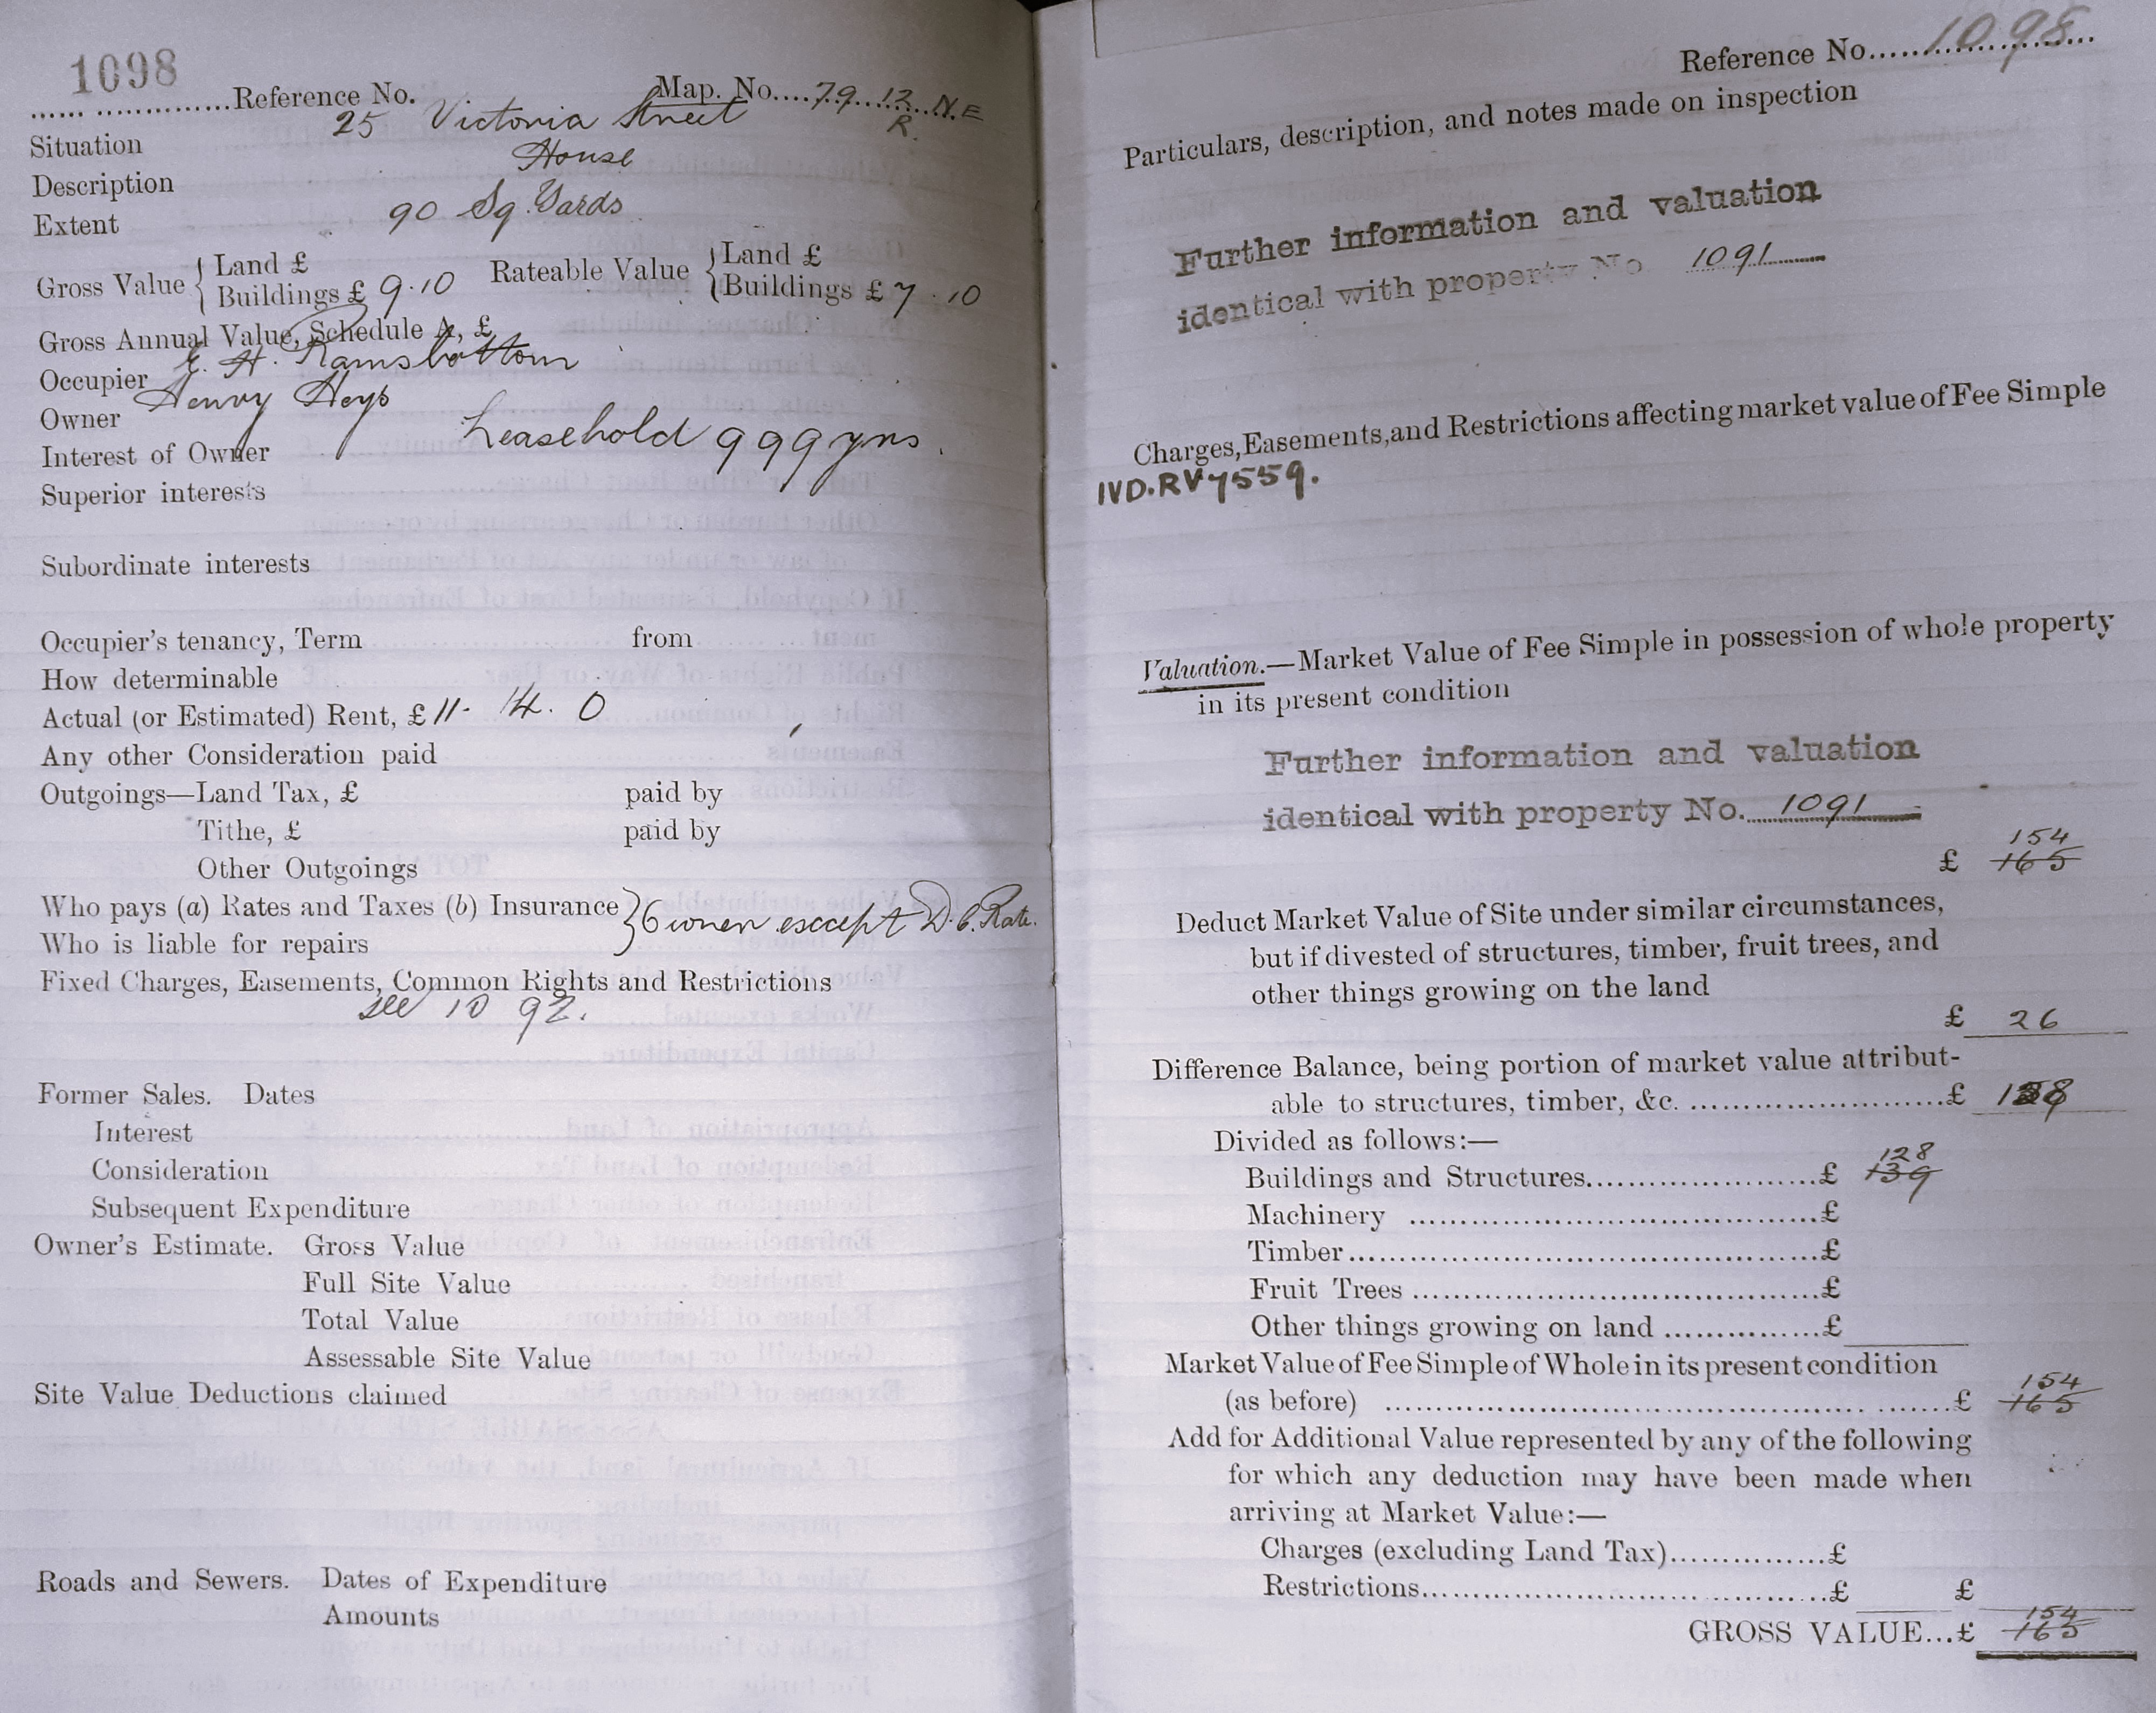 1098
...... ...............Reference No. Map. No....79...12...N.E
R.
Situation 25 Victoria Street
Description House
Extent 90 Sq. Yards
Gross Value { Land £
Buildings £ 9.10 Rateable Value { Land £
Buildings £ 7.10
Gross Annual Value, Schedule A, £
Occupier E. H. Ramsbottom
Owner Henry Heys
Interest of Owner Leasehold 999 yrs.
Superior interests
Subordinate interests
Occupier's tenancy, Term from
How determinable
Actual (or Estimated) Rent, £ 11. 14. 0
Any other Consideration paid
Outgoings—Land Tax, £ paid by
Tithe, £ paid by
Other Outgoings
Who pays (a) Rates and Taxes (b) Insurance } Owner except D.C. Rate.
Who is liable for repairs
Fixed Charges, Easements, Common Rights and Restrictions
see 1092.
Former Sales. Dates
Interest
Consideration
Subsequent Expenditure
Owner's Estimate. Gross Value
Full Site Value
Total Value
Assessable Site Value
Site Value Deductions claimed
Roads and Sewers. Dates of Expenditure
Amounts
Reference No......1098...
Particulars, description, and notes made on inspection
Further information and valuation
identical with property No. 1091
Charges, Easements, and Restrictions affecting market value of Fee Simple
IVD.RV 7559.
Valuation.—Market Value of Fee Simple in possession of whole property
in its present condition
Further information and valuation
identical with property No. 1091
154
£ 165
Deduct Market Value of Site under similar circumstances,
but if divested of structures, timber, fruit trees, and
other things growing on the land
£ 26
Difference Balance, being portion of market value attribut-
able to structures, timber, &c. ........................£ 128
Divided as follows:—
128
Buildings and Structures......................£ 139
Machinery ......................................£
Timber...........................................£
Fruit Trees ......................................£
Other things growing on land ...............£
Market Value of Fee Simple of Whole in its present condition
154
(as before) ..................................................£ 165
Add for Additional Value represented by any of the following
for which any deduction may have been made when
arriving at Market Value:—
Charges (excluding Land Tax)...............£
Restrictions.......................................£ £
154
GROSS VALUE...£ 165